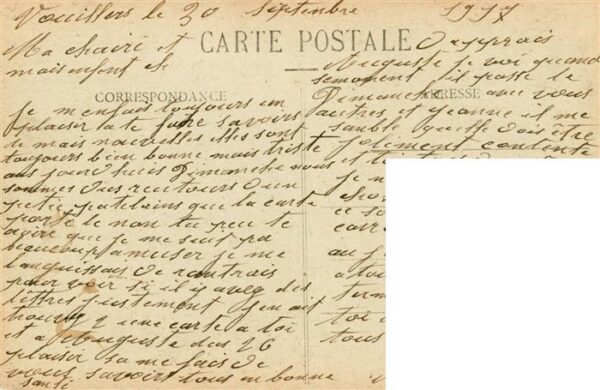 Vouillers le 30 septembre 1917
Ma chairé et
mais enfent et
CARTE POSTALE
CORRESPONDANCE
ADRESSE
Je m enfait toujours un
plaisir a te faire savoirs
de mais nouvelles elles sont
toujours bien bonne mais triste
aus jour d huis Dimanche nous
sommes d un
petit patelains que la carte
porte le non tu peu te
que je me suit pa
beaucoup amuser je me
languissais de rentrais
pour voir si il y aveg des
lettres justement j en ait
trouvy q une carte a toi
et a Auguste das 26
plaisir sa me fais de
vous savoirs tous en bonne
santé
D apprais
Auguste je voi quand
semoment il passe le
Dimanche avec vous
autres et jeanne il me
semble quelle dois être
joliment contente
et
je m
ce so
car
au
a toi
term
toi
tous